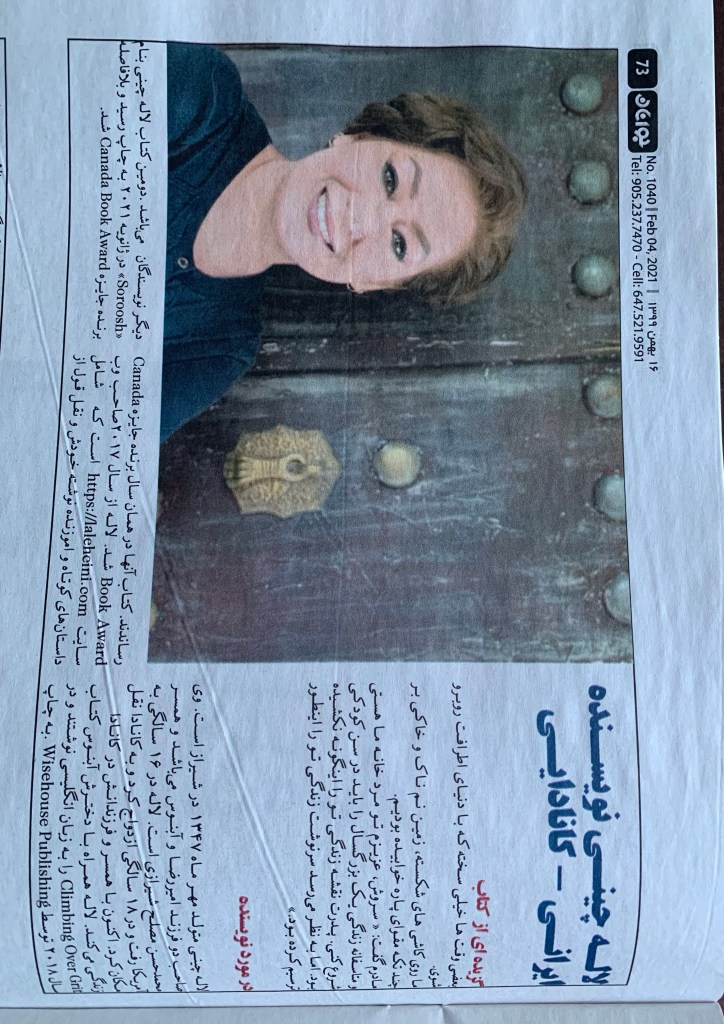 73
جوانان
No. 1040 | Feb 04, 2021 | ۱۶ بهمن ۱۳۹۹
Tel: 905.237.7470 - Cell: 647.521.9591
لاله چینی نویسنده
ایرانی – کانادایی
گزیده ای از کتاب
بعضی وقت ها خیلی سخته که با دنیای اطرافت روبرو
شوی.
ما روی کاشی های شکسته، زمین نم ناک و خاکی بر
چند تکه مقوای پاره خوابیده بودیم.
مادرم گفت: « سروش، عزیزم تو مرد خانه ما هستی
و متاسفانه زندگی یک بزرگسال را باید در سن کودکی
شروع کنی. پدرت نقشه زندگی تو را اینگونه نکشیده
بود. اما به نظر می‌رسد سرنوشت زندگی تو را اینطور
ترسیم کرده بود.»
در مورد نویسنده
لاله چینی متولد مهر ماه ۱۳۴۷ در شیراز است. وی
صاحب دو فرزند امیررضا و آبنوس می‌باشد و همسر
محمدحسن مصلح شیرازی است. لاله در ۱۶ سالگی به
آمریکا رفت و در ۱۸ سالگی ازدواج کرد و به کانادا نقل
مکان کرد. اکنون با همسر و فرزندانش در کانادا
زندگی می کند. لاله همراه با دخترش آبنوس کتاب
Climbing Over Grit را به زبان انگلیسی نوشتند و در
سال ۲۰۱۸ توسط Wisehouse Publishing به چاپ
رساندند. کتاب آنها در همان سال برنده جایزه Canada
Book Award شد. لاله از سال ۲۰۱۷ صاحب وب
سایت https://lalehcini.com است که شامل
داستان‌های کوتاه و آموزنده نوشته خودش و نقل قول از
دیگر نویسندگان می‌باشد. دومین کتاب لاله چینی بنام
«Soroosh» در ژانویه ۲۰۲۱ به چاپ رسید و بلافاصله
برنده جایزه Canada Book Award شد.